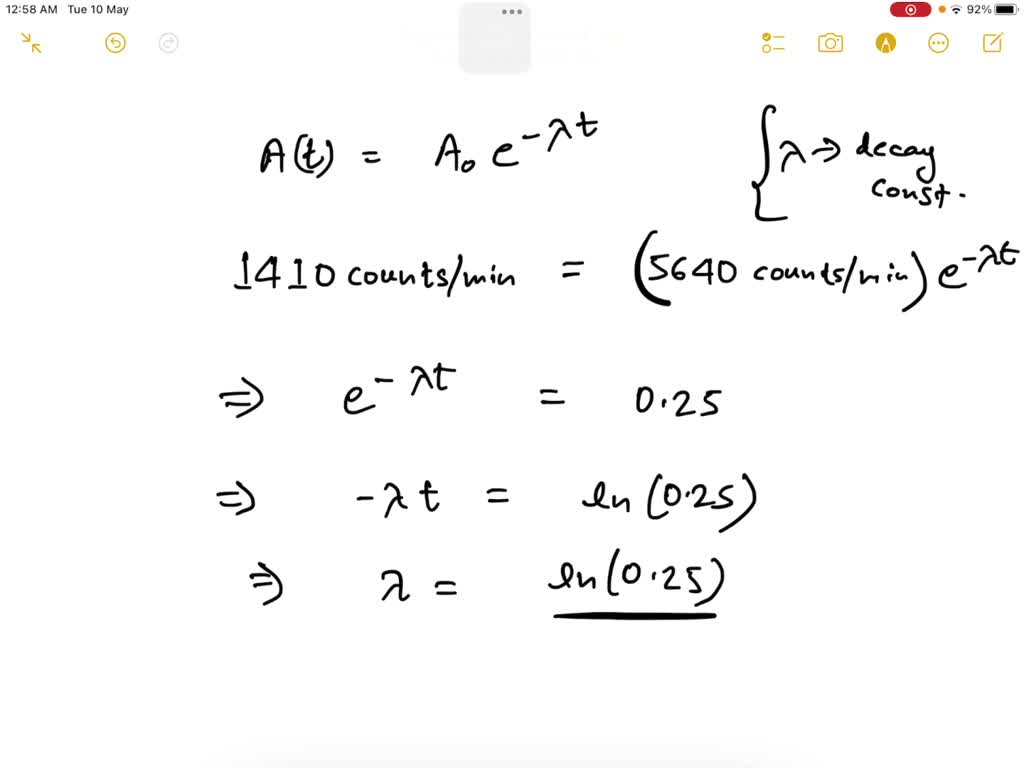 12:58 AM Tue 10 May 92%
A(t) = A₀ e^{-λt}
{λ → decay
const.
1410 counts/min = (5640 counts/min) e^{-λt}
⇒ e^{-λt} = 0.25
⇒ -λt = ln(0.25)
⇒ λ = ln(0.25)